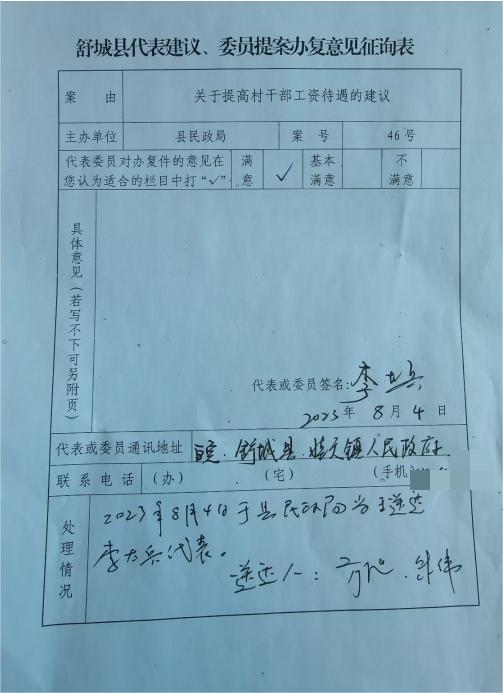 舒城县代表建议、委员提案办复意见征询表
案 由 关于提高村干部工资待遇的建议
主办单位 县民政局 案 号 46号
代表委员对办复件的意见在您认为适合的栏目中打“√” 满意 √ 基本满意 不满意
具体意见（若写不下可另附页）
代表或委员签名: 李大兵
2023年 8月 4日
代表或委员通讯地址 舒城县 镇人民政府
联系电话 (办) (宅) (手机)
处理情况
2023年8月4日于县民政局当面送达
李大兵代表。
送达人：